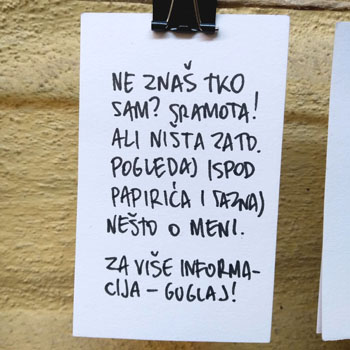 NE ZNAŠ TKO
SAM? SRAMOTA!
ALI NIŠTA ZATO.
POGLEDAJ ISPOD
PAPIRIĆA I SAZNAJ
NEŠTO O MENI.
ZA VIŠE INFORMA-
CIJA - GUGLAJ!